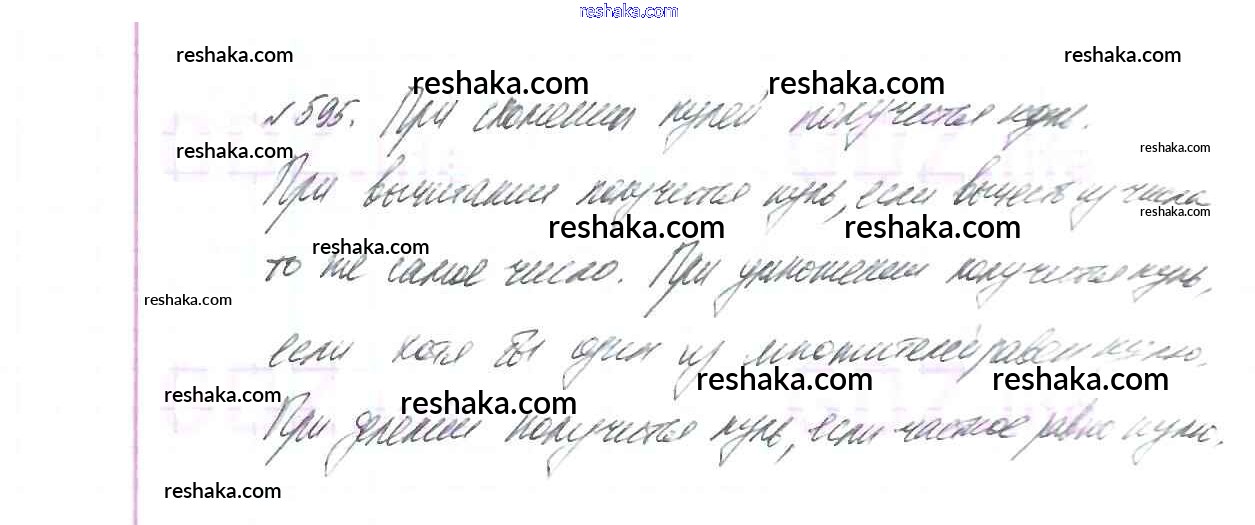 reshaka.com
reshaka.com reshaka.com
reshaka.com reshaka.com
№ 595. При сложении нулей получится нуль.
reshaka.com reshaka.com
При вычитании получится нуль, если вычесть из числа
reshaka.com
reshaka.com reshaka.com
reshaka.com
то же самое число. При умножении получится нуль,
reshaka.com
если хотя бы один из множителей равен нулю.
reshaka.com reshaka.com
reshaka.com reshaka.com
При делении получится нуль, если частное равно нулю.
reshaka.com